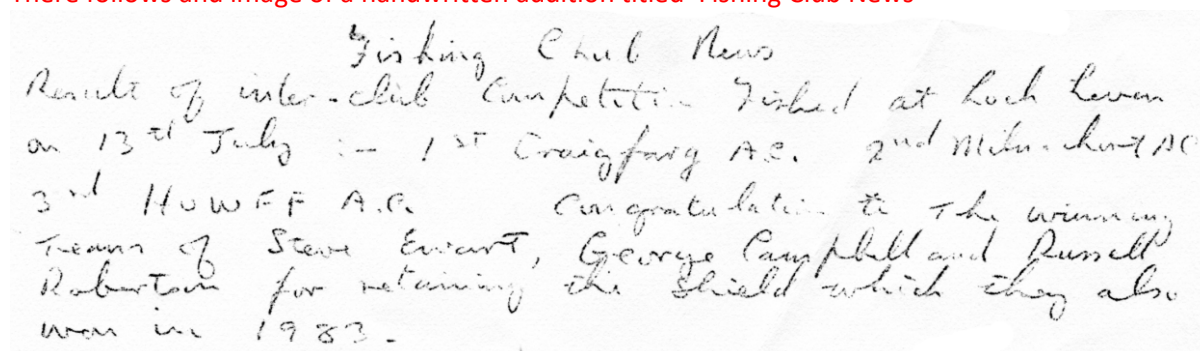 There follows and image of a handwritten addition titled 'Fishing Club News'
Fishing Club News
Result of inter-club Competition Fished at Loch Leven
on 13th July :- 1ST Craigfarg A.C. 2nd Milnathort AC
3rd HOWFF A.C. Congratulation to The winning
Team of Steve Ewart, George Campbell and Russell
Robertson for retaining the Shield which they also
won in 1983.